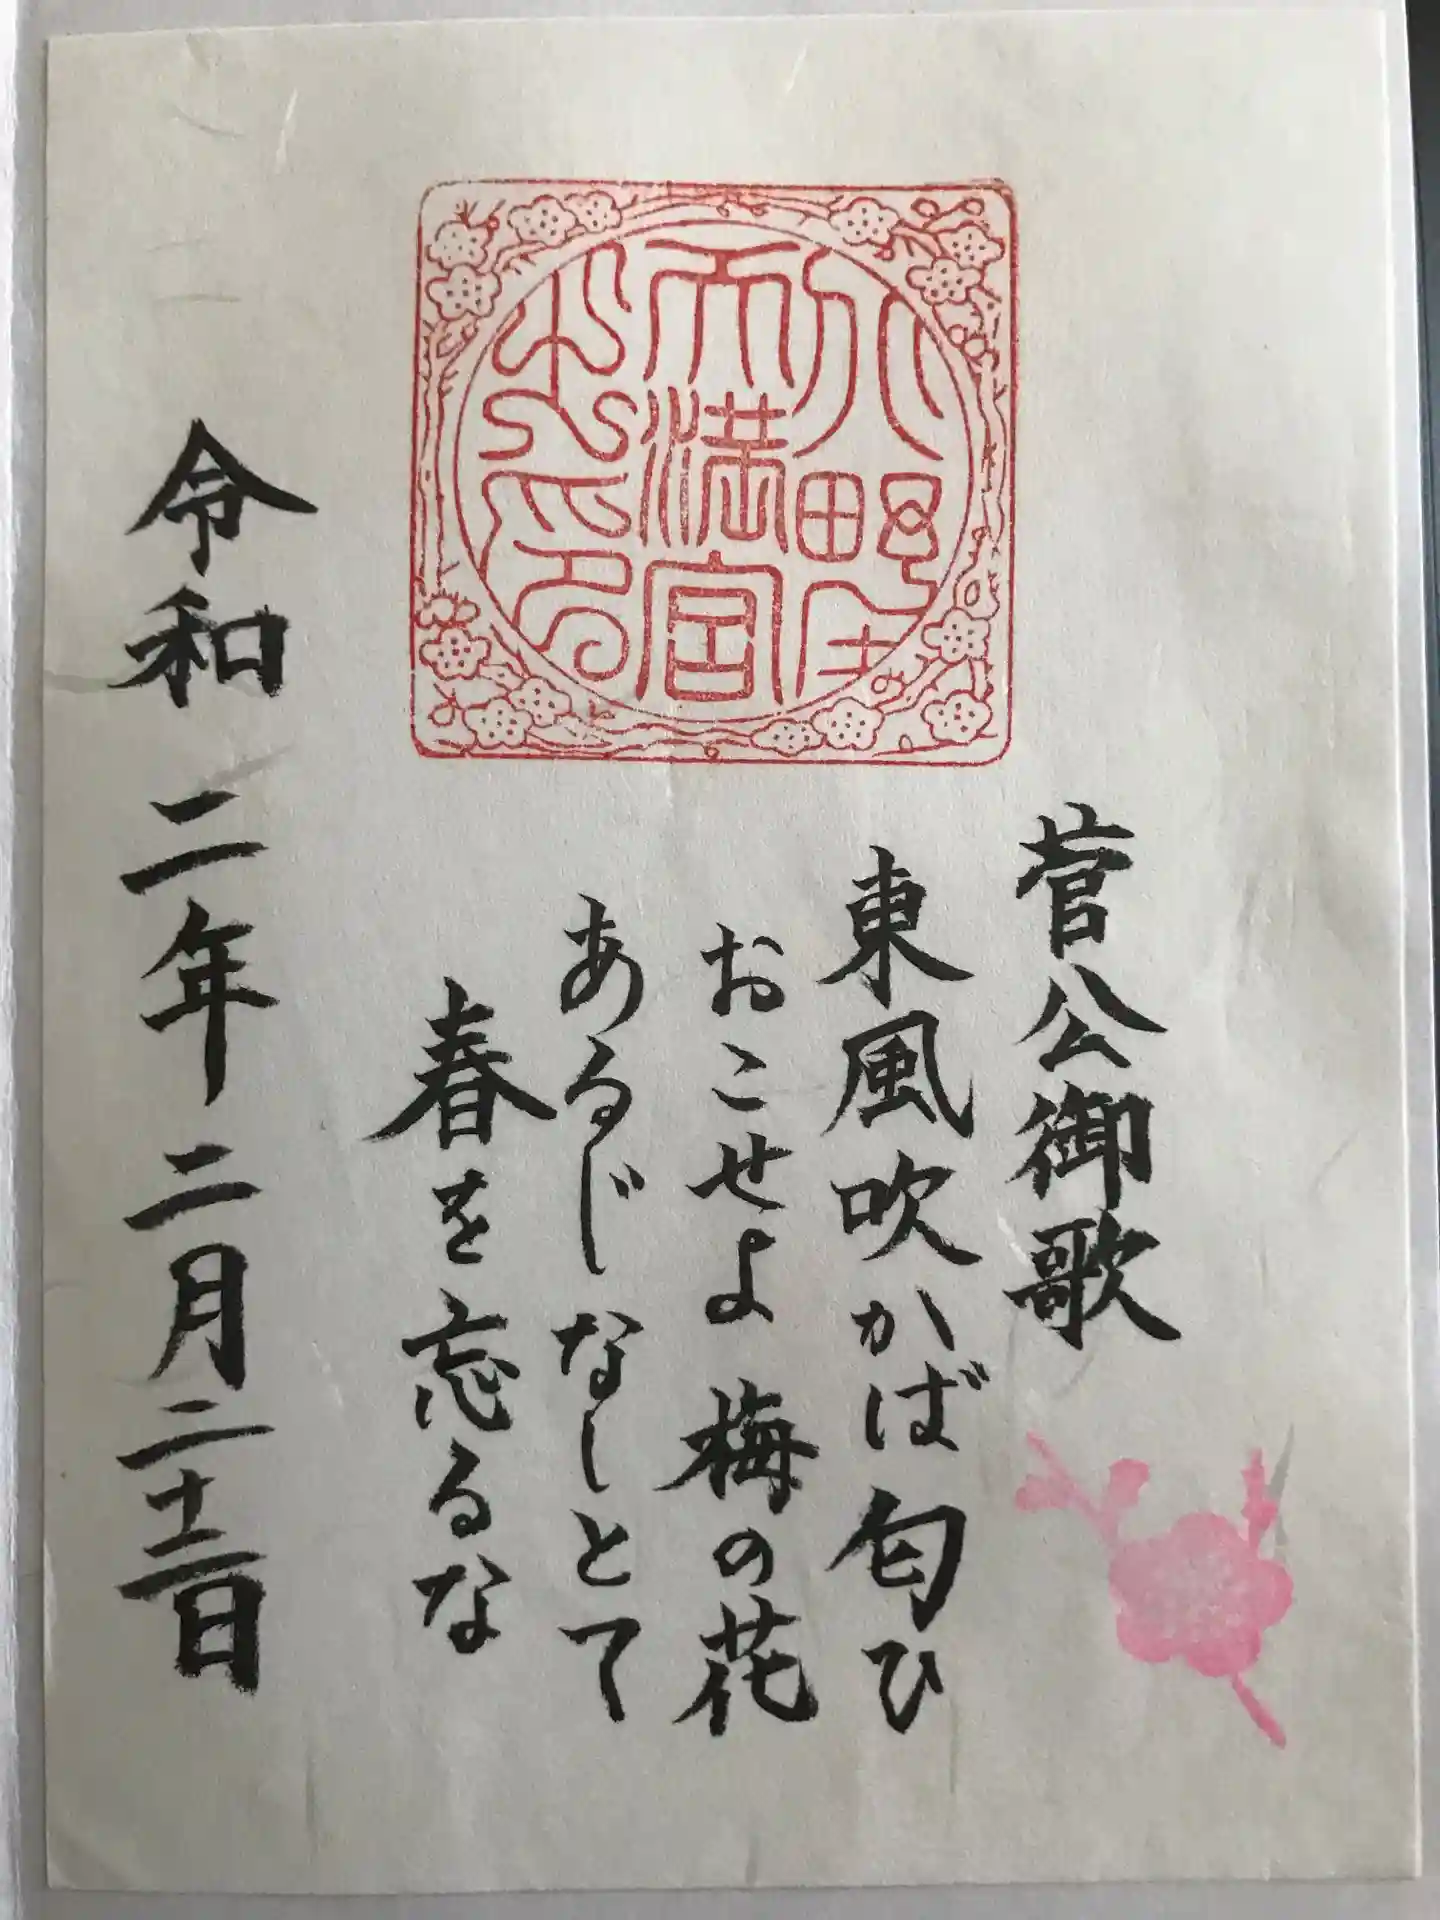 天満宮
之印
菅公御歌
東風吹かば匂ひ
おこせよ梅の花
あるじなしとて
春を忘るな
令和二年二月二十二日